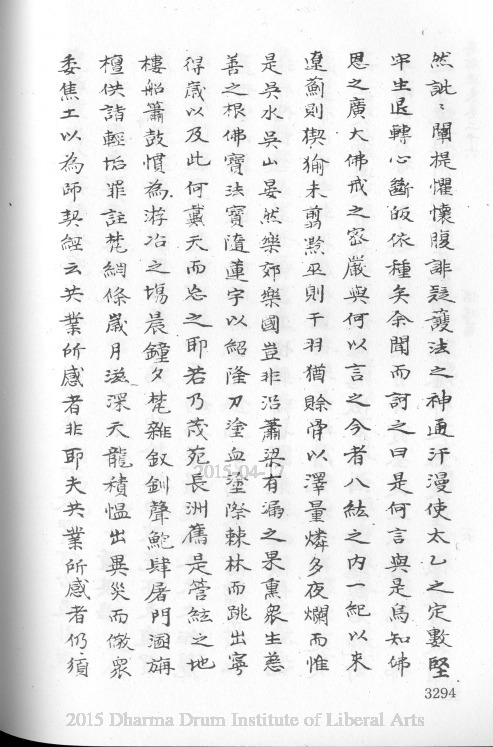 然訿訿闡提懼懷腹誹疑護法之神通汗漫使太乙之定數堅
牢生退轉心斷皈依種矣余聞而訶之曰是何言與是烏知佛
恩之廣大佛戒之密嚴與何以言之今者八紘之內一紀以來
遼薊則猰㺄未翦黔巫則干羽猶賒骨以澤量燐多夜爛而惟
是吳水吳山晏然樂郊樂國豈非沿蕭梁有漏之果熏衆生慈
善之根佛寶法寶隨蓮宇以紹隆刀塗血塗際棘林而跳出寧
得歲以及此何戴天而忘之耶若乃茂宛長洲舊是管絃之地
樓船簫鼓慣為游冶之場晨鐘夕梵雜釵釧聲鮑肆屠門溷旃
檀供諸輕垢罪註梵網條歲月滋深天龍積愠出異災而儆衆
委焦土以為師契經云共業所感者非耶夫共業所感者仍須
3294
2015-04-17
2015 Dharma Drum Institute of Liberal Arts